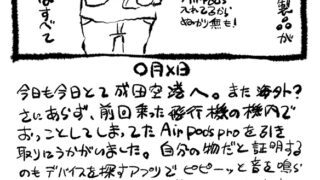 製品が
Airpods
入れてるから
ぬかり無も!
はすべて
〇月×日
今日も今日とて成田空港へ。また海外?
さにあらず、前回乗った飛行機の機内で
おっことしてしまってたAirpods proを引き
取りにうかがいました。自分の物だと証明する
のもデバイスを探すアプリでピピーッと音を鳴ら